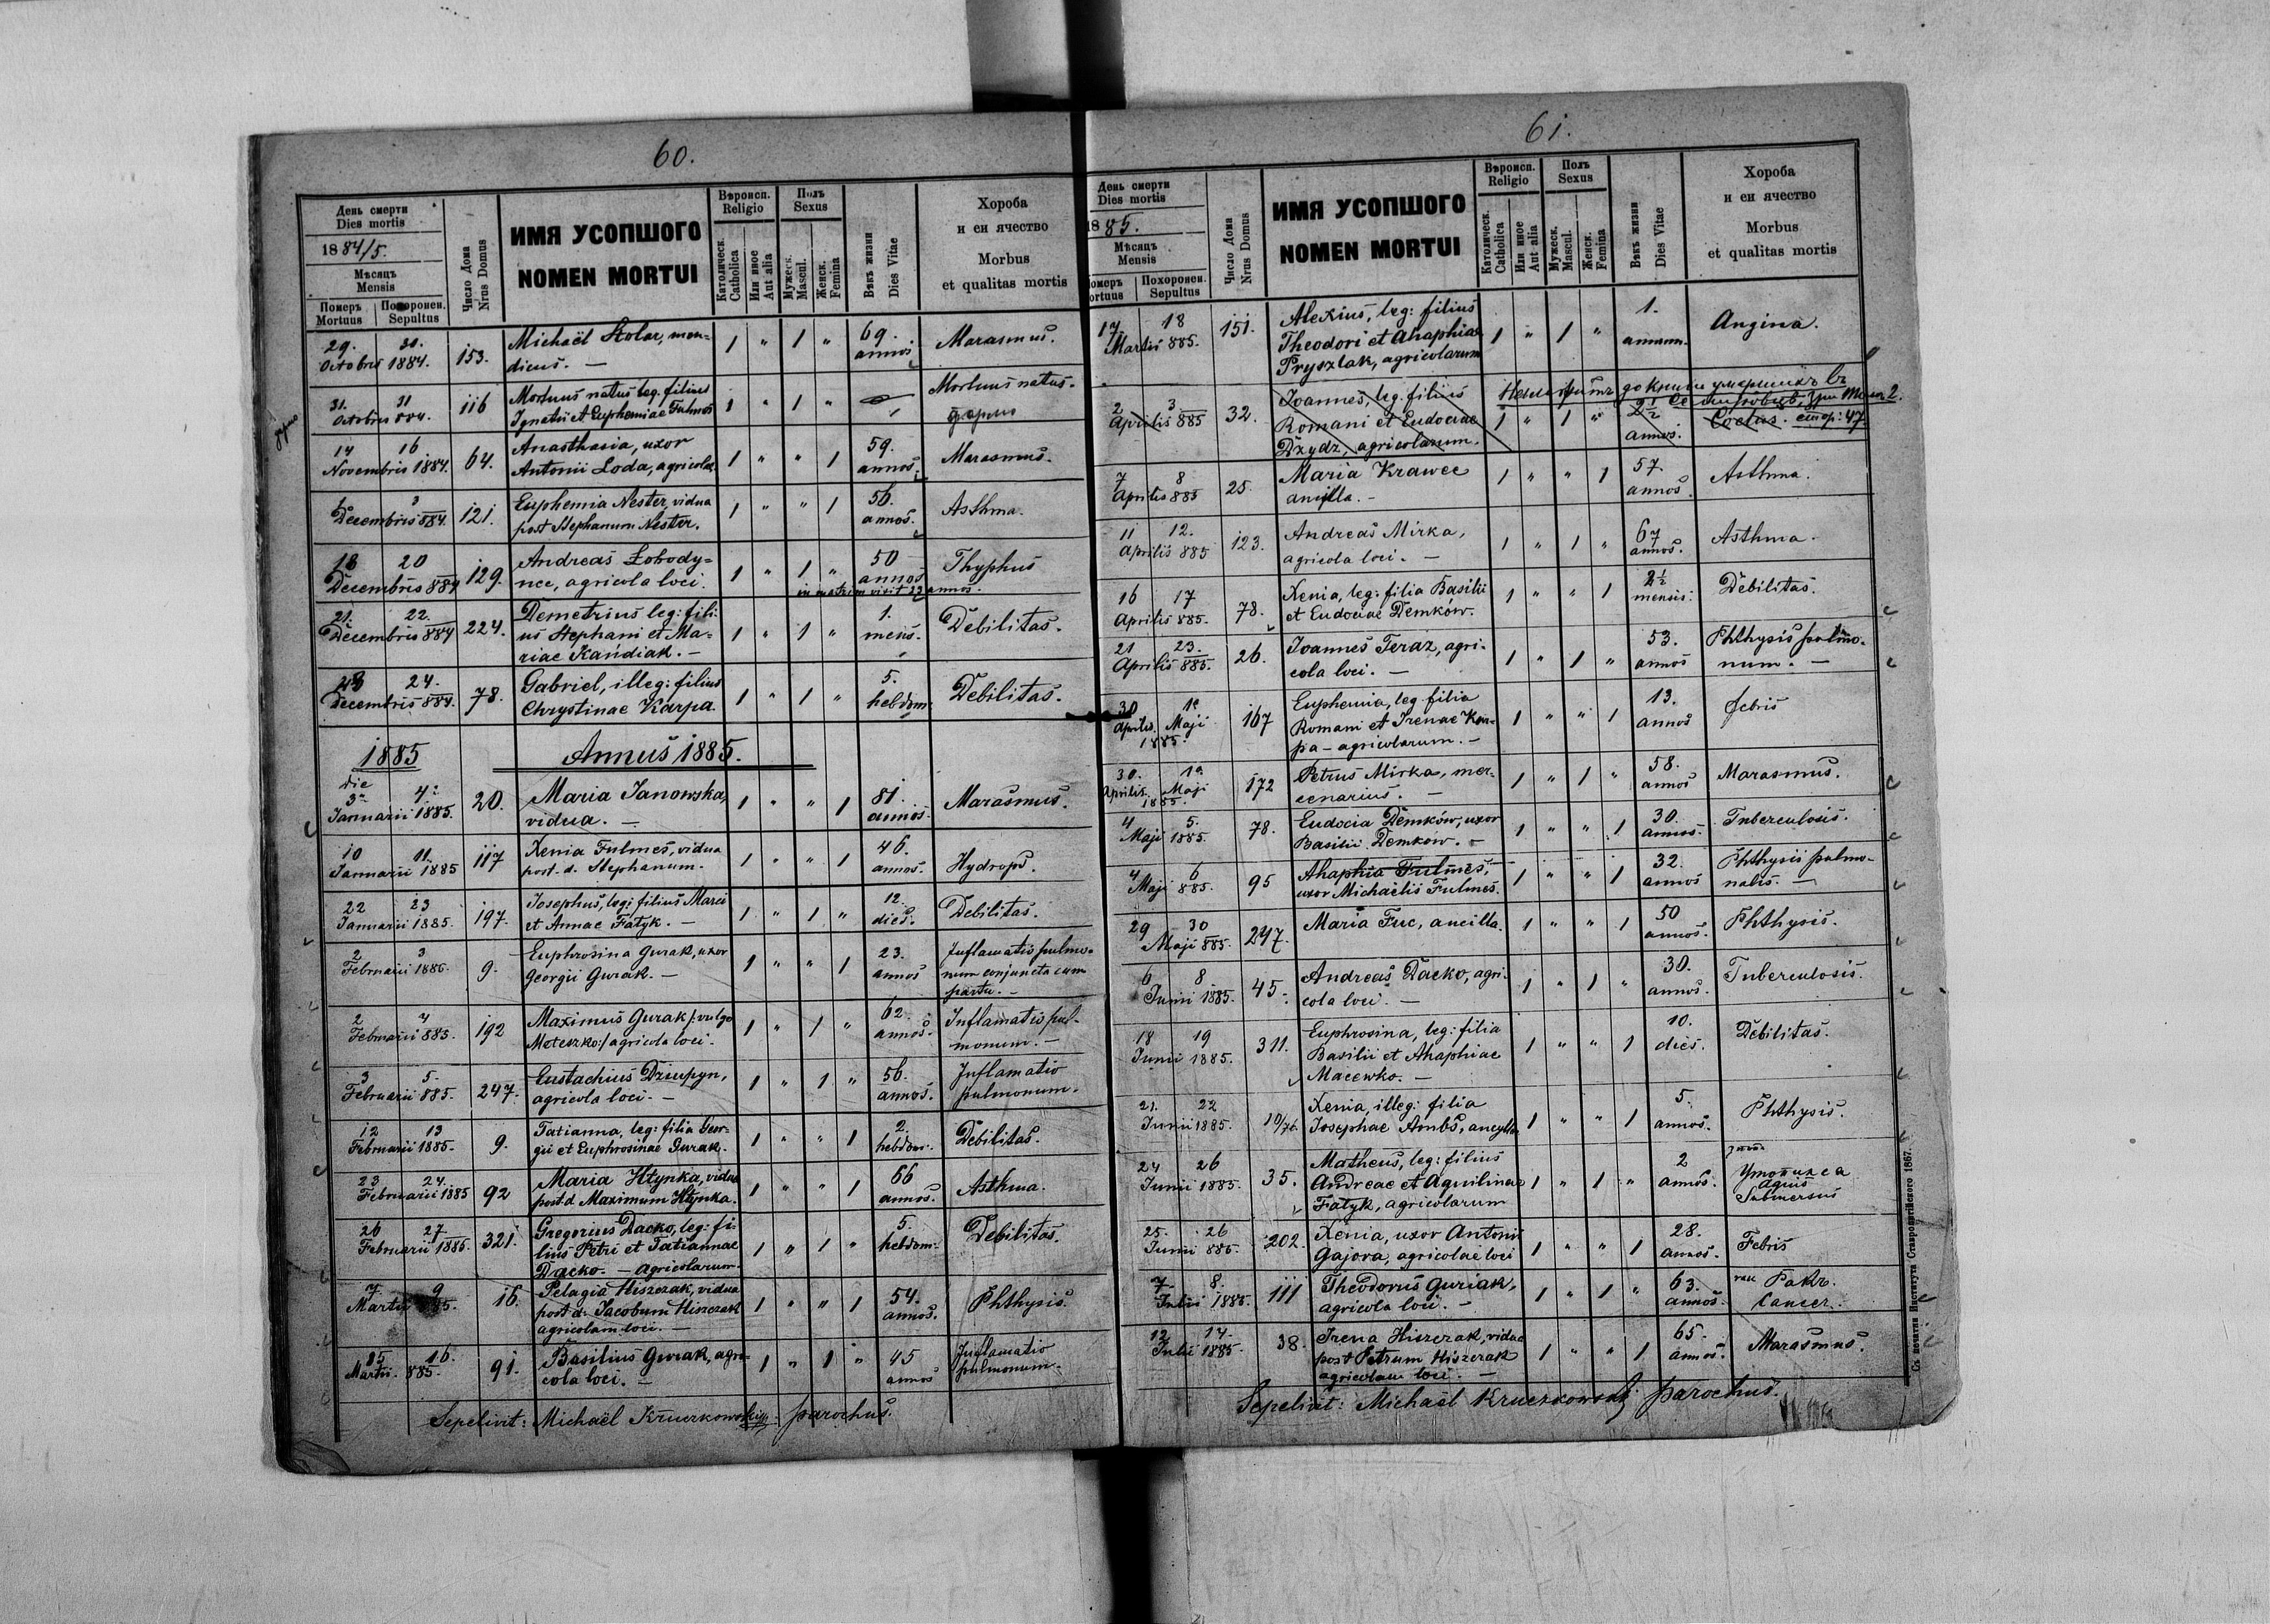 60.
День смерти
Dies mortis
1884/5.
Мѣсяцъ
Mensis
Померъ
Mortuus
Похоронен.
Sepultus
Число Дома
Nrus Domus
ИМЯ УСОПШОГО
NOMEN MORTUI
Вѣроисп.
Religio
Католическ.
Catholica
Или иное
Aut alia
Полъ
Sexus
Мужеск.
Mascul.
Женск.
Femina
Вѣкъ жизни
Dies Vitae
Хороба
и еи ячество
Morbus
et qualitas mortis
29. 31. Octobris 1884. 153. Michaël Stolar, men-
dicus. — 1 " 1 " 69. annos Marasmus.
31. 31 Octobris 884. 116 Mortuus natus leg. filius
Ignatii et Euphemiae Fulmes 1 " 1 " Mortuus natus.
14 16 Novembris 1884. 64. Anasthasia, uxor
Antonii Loda, agricolae 1 " " 1 59. annos. Marasmus.
1 3 Decembris 884. 121. Euphemia Nester, vidua
post Stephanum Nester. 1 " " 1 56. annos. Asthma.
18 20 Decembris 884 129. Andreas Łobody=
nec, agricola loci. 1 " 1 " 50 annos Thyphus
in matrim vixit 22 annos.
21. 22. Decembris 884 224. Demetrius leg: fili-
us Stephani et Ma-
riae Kandiak. — 1 " 1 " 1. mens. Debilitas.
23 24. Decembris 884. 78. Gabriel, illeg: filius
Chrystinae Karpa. 1 " 1 " 5. hebdom. Debilitas.
1885 Annus 1885.
die 3a 4a Januarii 1885. 20. Maria Janowska,
vidua. — 1 " " 1 81. annos. Marasmus.
10 11. Januarii 1885 117 Xenia Fulmes, vidua
post. d. Stephanum. 1 " " 1 46. annos. Hydrops.
22 23 Januarii 1885. 197. Josephus, leg: filius Marci
et Annae Fatyk. — 1 " 1 " 12. dies. Debilitas.
2 3 Februarii 1885. 9. Euphrosina Gurak, uxor
Georgii Gurak. — 1 " " 1 23. annos Inflamatio pulmo-
num conjuncta cum
partu. —
2 4 Februarii 885. 192 Maximus Gurak /: vulgo
Moteszko:/ agricola loci. 1 " 1 " 62. annos. Inflamatio pul-
monum. —
3 5. Februarii 885. 247. Eustachius Dziupyn,
agricola loci. — 1 " 1 " 56. annos. Inflamatio
pulmonum.
12 13 Februarii 1885. 9. Tatianna, leg: filia Geor-
gii et Euphrosinae Gurak. 1 " " 1 2. hebdom. Debilitas.
23 24. Februarii 1885 92 Maria Hlynka, vidua
post. d. Maximum Hlynka. 1 " " 1 66 annos. Asthma.
26 27 Februarii 1885. 321. Gregorius Dacko, leg: fi-
lius Petri et Tatiannae
Dacko. — agricolarum. 1 " 1 " 5. hebdom. Debilitas.
7 9 Martii 885. 16. Pelagia Hiszczak, vidua
post d. Jacobum Hiszczak
agricolam loci. — 1 " " 1 54. annos. Phthysis.
15 16. Martii. 885. 91. Basilius Gurak, agri-
cola loci. — 1 " 1 " 45 annos Inflamatio
pulmonum.
Sepelivit: Michaël Kruczkowskij parochus.
61.
День смерти
Dies mortis
1885.
Мѣсяцъ
Mensis
Померъ
Mortuus
Похоронен.
Sepultus
Число Дома
Nrus Domus
ИМЯ УСОПШОГО
NOMEN MORTUI
Вѣроисп.
Religio
Католическ.
Catholica
Или иное
Aut alia
Полъ
Sexus
Мужеск.
Mascul.
Женск.
Femina
Вѣкъ жизни
Dies Vitae
Хороба
и еи ячество
Morbus
et qualitas mortis
17 18 Martii 885. 151. Alexius, leg: filius
Theodori et Ahaphiae
Pryszlak, agricolarum 1 " 1 " 1. annum. Angina.
2 3 Aprilis 885 32. Joannes, leg. filius
Romani et Eudociae
Dżydz, agricolarum. 1 " 1 " 2½ annos. Coctus. стор: 47.
7 8 Aprilis 885 25. Maria Krawec
ancylla. — 1 " " 1 57. annos. Asthma.
11 12. Aprilis 885 123. Andreas Mirka,
agricola loci. — 1 " 1 " 67 annos. Asthma.
16 17 Aprilis 885. 78. Xenia, leg: filia Basilii
et Eudociae Demków. 1 " " 1 2½ mensis. Debilitas.
21 23. Aprilis 885. 26. Joannes Teraz, agri-
cola loci. — 1 " 1 " 53. annos Phthysis pulmo-
num. —
30 1a Aprilis. Maji 1885. 167 Euphemia, leg filia
Romani et Irenae Kar-
pa — agricolarum. — 1 " " 1 13. annos febris
30. 1a Aprilis. Maji 1885. 172 Petrus Mirka, mer-
cenarius. — 1 " 1 " 58. annos Marasmus.
4 5. Maji 1885. 78. Eudocia Demków, uxor
Basilii Demków. — 1 " " 1 30. annos. Tuberculosis.
4 6 Maji 885. 95 Ahaphia Fulmes,
uxor Michaëlis Fulmes. 1 " " 1 32. annos Phthysis pulmo-
nalis. —
29 30 Maji 885. 247. Maria Fuc, ancilla. 1 " " 1 50 annos. Phthysis.
6 8 Junii 1885. 45. Andreas Dacko, agri-
cola loci. — 1 " 1 " 30. annos. Tuberculosis.
18 19 Junii 1885. 311. Euphrosina, leg: filia
Basilii et Ahaphiae
Macewko. — 1 " " 1 10. dies. Debilitas.
21. 22 Junii 1885. 10/76. Xenia, illeg: filia
Josephae Ambs, ancylla 1 " " 1 5. annos. Phthysis.
24 26 Junii 1885. 35. Matheus, leg: filius
Andreae et Aquilinae
Fatyk, agricolarum 1 " 1 " 2 annos. Утопился
aquis
submersus
25. 26 Junii 885. 202. Xenia, uxor Antonii
Gajora, agricolae loci 1 " " 1 28. annos. Febris
7 8. Julii 1885. 111 Theodorus Guriak,
agricola loci. — 1 " 1 " 63. annos. Ракъ.
Cancer.
12 14. Julii 1885. 38. Irena Hiszczak, vidua
post Petrum Hiszczak
agricolam loci. — 1 " " 1 65. annos. Marasmus.
Sepelivit: Michaël Kruczkowskij parochus.
Съ печатни Института Ставропигійского 1867.